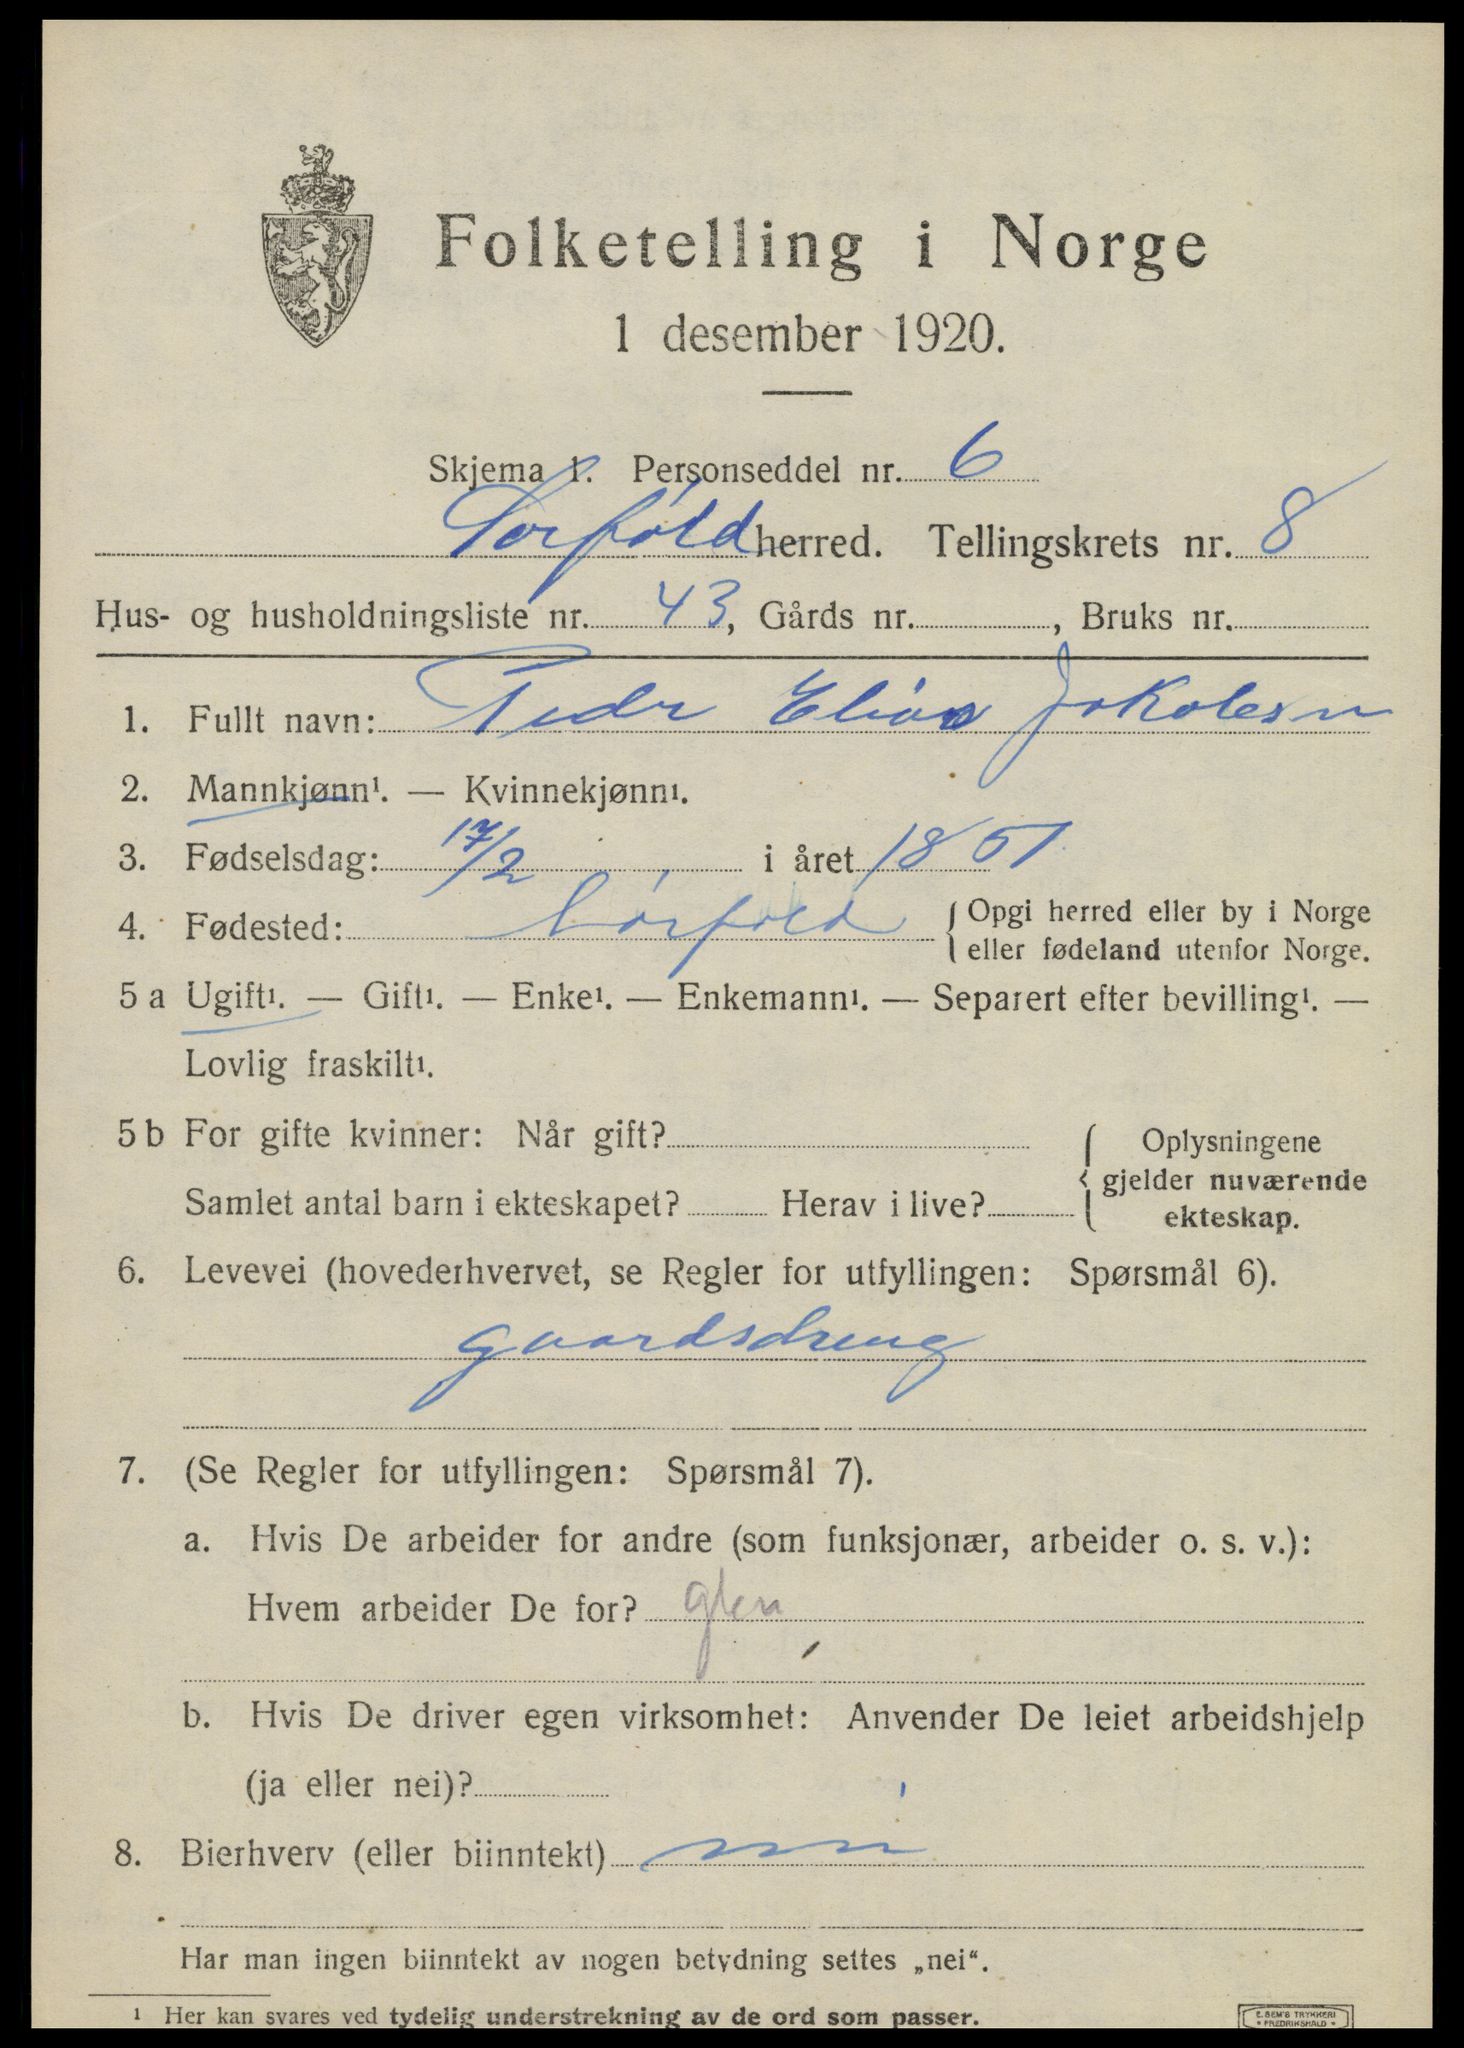 Folketelling i Norge
1 desember 1920.
Skjema 1. Personseddel nr. 6
Sørfold herred. Tellingskrets nr. 8
Hus- og husholdningsliste nr. 43, Gårds nr. , Bruks nr.
1. Fullt navn: Peder Elias Jakobsen
2. Mannkjønn¹. — Kvinnekjønn¹.
3. Fødselsdag: 17/2 i året 1851
4. Fødested: Sørfold { Opgi herred eller by i Norge
eller fødeland utenfor Norge.
5 a Ugift¹. — Gift¹. — Enke¹. — Enkemann¹. — Separert efter bevilling¹. —
Lovlig fraskilt¹.
5 b For gifte kvinner: Når gift?
Samlet antal barn i ekteskapet? Herav i live?
Oplysningene
gjelder nuværende
ekteskap.
6. Levevei (hovederhvervet, se Regler for utfyllingen: Spørsmål 6).
gaardsdreng
7. (Se Regler for utfyllingen: Spørsmål 7).
a. Hvis De arbeider for andre (som funksjonær, arbeider o. s. v.):
Hvem arbeider De for?
b. Hvis De driver egen virksomhet: Anvender De leiet arbeidshjelp
(ja eller nei)?
8. Bierhverv (eller biinntekt) nei
Har man ingen biinntekt av nogen betydning settes „nei“.
¹ Her kan svares ved tydelig understrekning av de ord som passer.
E. SEM'S TRYKKERI
• FREDRIKSHALD •